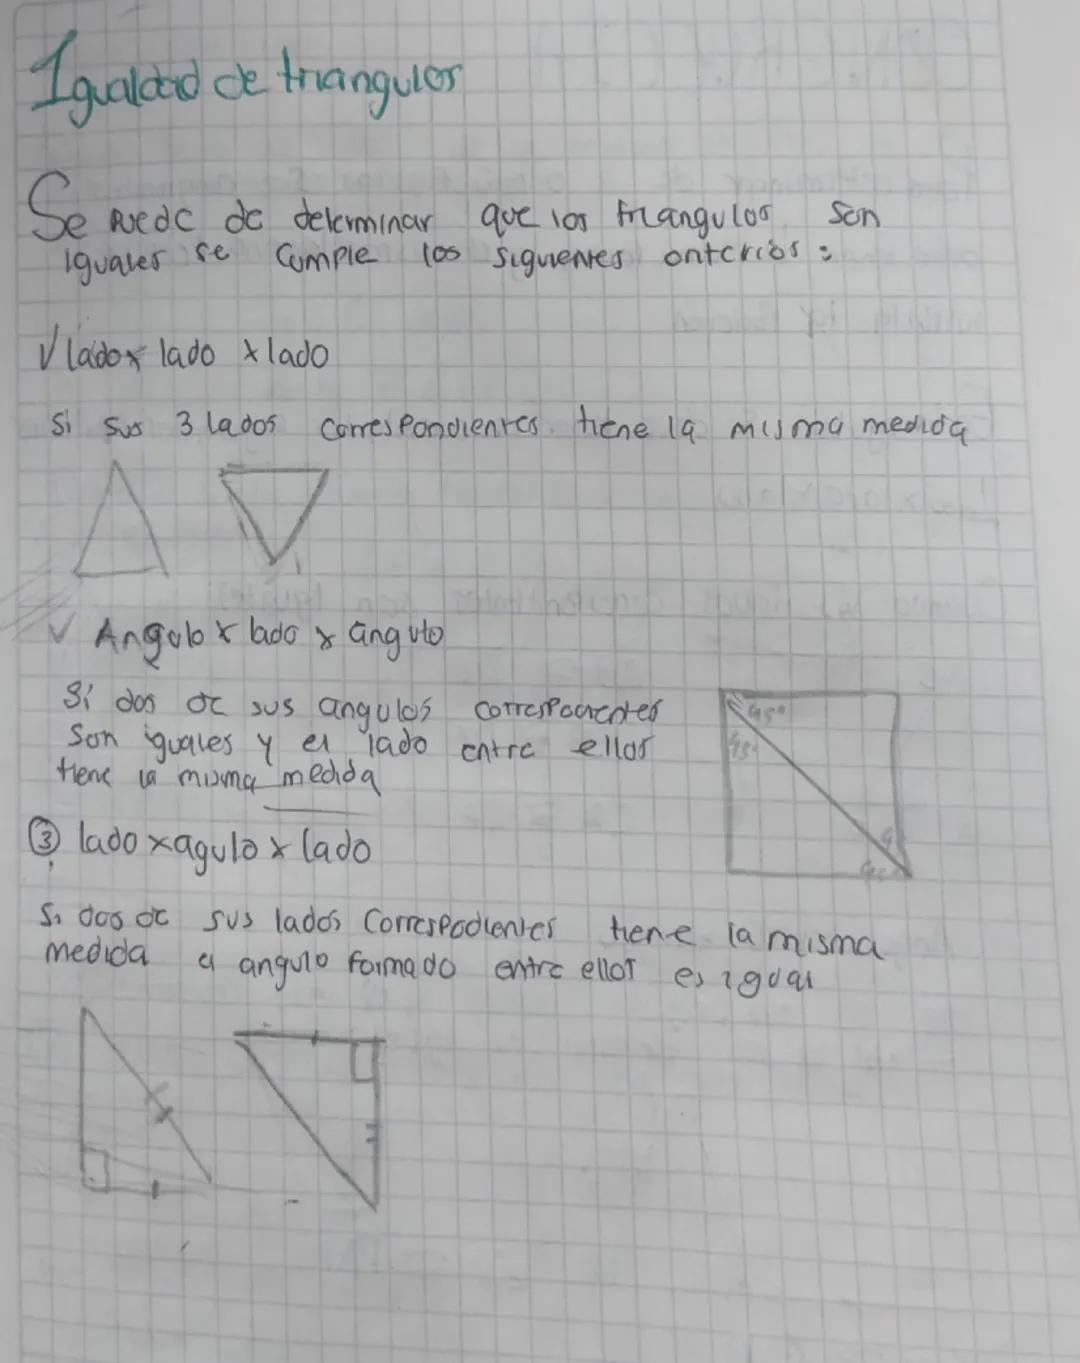 Igualdad de triangulos
Se puede de determinar que los triangulos son
iguales se cumple los siguientes criterios :
√ lado x lado x lado
Si sus 3 lados correspondientes tiene la misma medida
√ Angulo x lado x angulo
Si dos de sus angulos correspondientes
Son iguales y el lado entre ellos
tiene la misma medida
45°
45°
③ lado x agulo x lado
Si dos de sus lados Correspodientes tiene la misma
medida el angulo formado entre ellos es igual